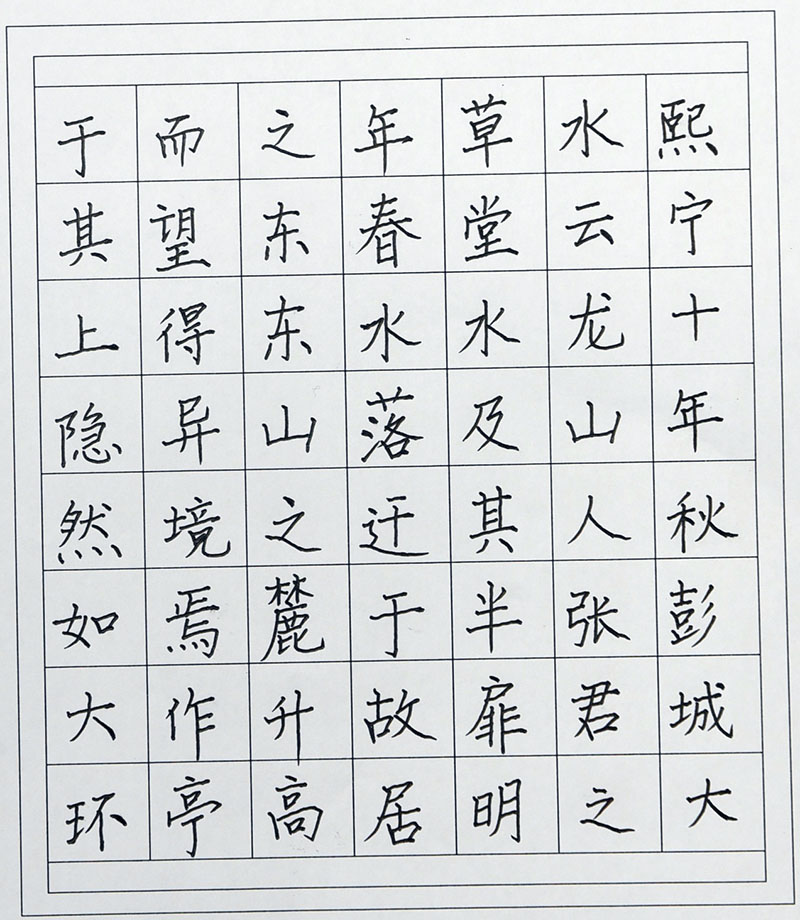 熙宁十年秋彭城大
水云龙山人张君之
草堂水及其半扉明
年春水落迁于故居
之东东山之麓升高
而望得异境焉作亭
于其上隐然如大环